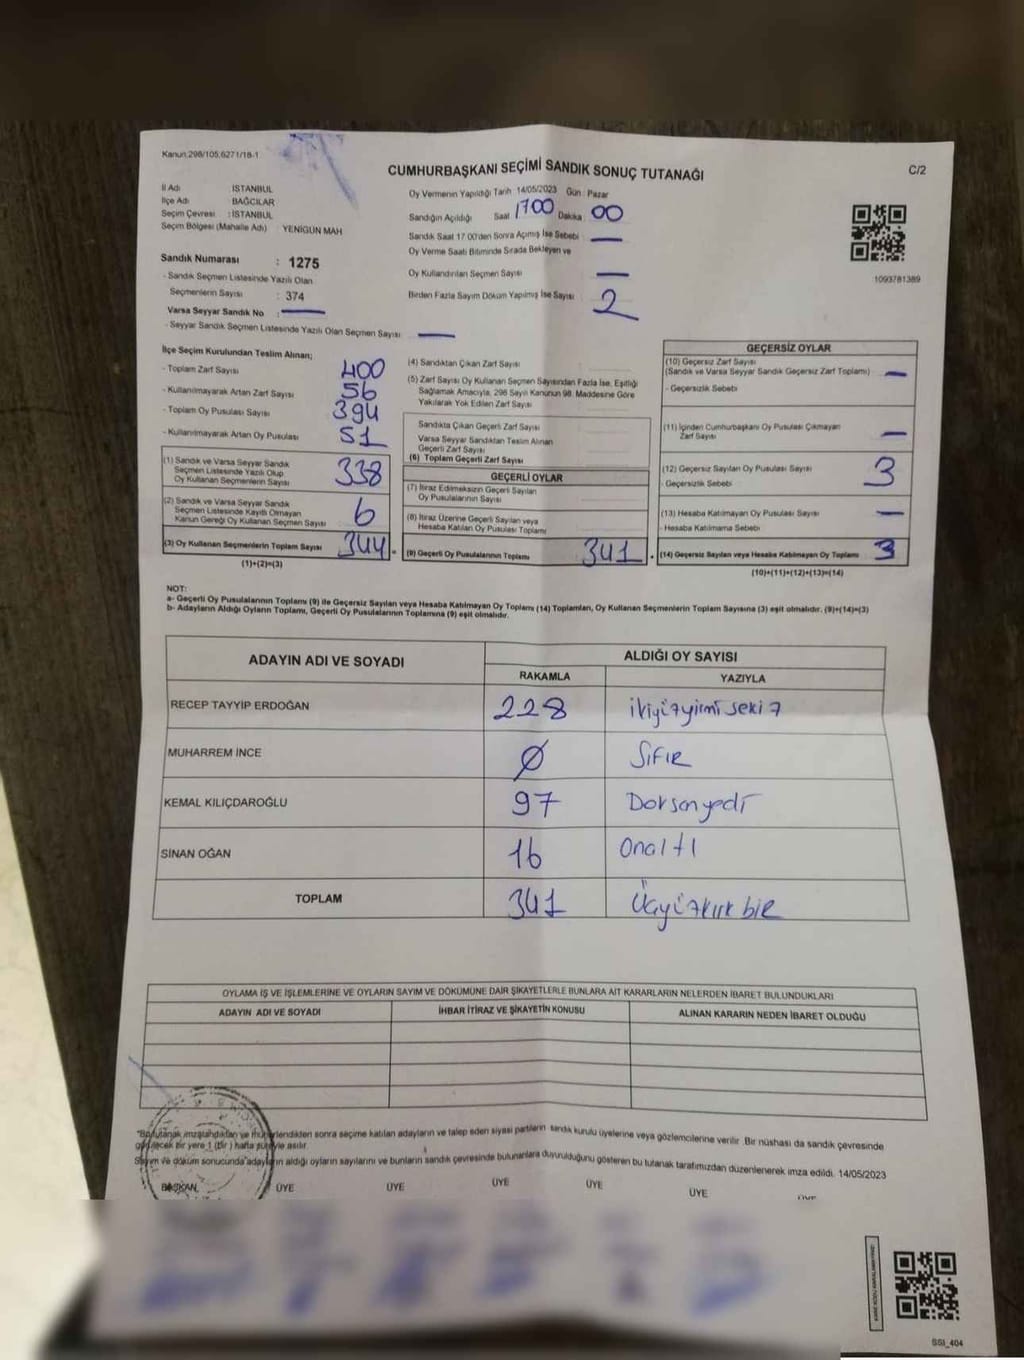 Kanun:298/105,6271/18-1
CUMHURBAŞKANI SEÇİMİ SANDIK SONUÇ TUTANAĞI
C/2
İl Adı İSTANBUL
İlçe Adı BAĞCILAR
Seçim Çevresi : İSTANBUL
Seçim Bölgesi (Mahalle Adı) YENİGÜN MAH
Sandık Numarası : 1275
- Sandık Seçmen Listesinde Yazılı Olan
Seçmenlerin Sayısı : 374
Varsa Seyyar Sandık No :
- Seyyar Sandık Seçmen Listesinde Yazılı Olan Seçmen Sayısı
Oy Vermenin Yapıldığı Tarih 14/05/2023 Gün : Pazar
Sandığın Açıldığı Saat 1700 Dakika : 00
Sandık Saat 17.00'den Sonra Açımış İse Sebebi
Oy Verme Saati Bitiminde Sırada Bekleyen ve
Oy Kullandırılan Seçmen Sayısı
Birden Fazla Sayım Döküm Yapılmış İse Sayısı 2
1093781389
İlçe Seçim Kurulundan Teslim Alınan;
- Toplam Zarf Sayısı 400
- Kullanılmayarak Artan Zarf Sayısı 56
- Toplam Oy Pusulası Sayısı 394
- Kullanılmayarak Artan Oy Pusulası 51
(1) Sandık ve Varsa Seyyar Sandık
Seçmen Listesinde Yazılı Olup
Oy Kullanan Seçmenlerin Sayısı 338
(2) Sandık ve Varsa Seyyar Sandık
Seçmen Listesinde Kayıtlı Olmayan
Kanun Gereği Oy Kullanan Seçmen Sayısı 6
(3) Oy Kullanan Seçmenlerin Toplam Sayısı 344
(1)+(2)=(3)
(4) Sandıktan Çıkan Zarf Sayısı
(5) Zarf Sayısı Oy Kullanan Seçmen Sayısından Fazla İse, Eşitliği
Sağlamak Amacıyla, 298 Sayılı Kanunun 98. Maddesine Göre
Yakılarak Yok Edilen Zarf Sayısı
Sandıkta Çıkan Geçerli Zarf Sayısı
Varsa Seyyar Sandıktan Teslim Alınan
Geçerli Zarf Sayısı
(6) Toplam Geçerli Zarf Sayısı
GEÇERLİ OYLAR
(7) İtiraz Edilmeksizin Geçerli Sayılan
Oy Pusulalarının Sayısı
(8) İtiraz Üzerine Geçerli Sayılan veya
Hesaba Katılan Oy Pusulası Toplamı
(9) Geçerli Oy Pusulalarının Toplamı 341
GEÇERSİZ OYLAR
(10) Geçersiz Zarf Sayısı
(Sandık ve Varsa Seyyar Sandık Geçersiz Zarf Toplamı)
- Geçersizlik Sebebi
(11) İçinden Cumhurbaşkanı Oy Pusulası Çıkmayan
Zarf Sayısı
(12) Geçersiz Sayılan Oy Pusulası Sayısı 3
- Geçersizlik Sebebi
(13) Hesaba Katılmayan Oy Pusulası Sayısı
- Hesaba Katılmama Sebebi
(14) Geçersiz Sayılan veya Hesaba Katılmayan Oy Toplamı 3
(10)+(11)+(12)+(13)=(14)
NOT:
a- Geçerli Oy Pusulalarının Toplamı (9) ile Geçersiz Sayılan veya Hesaba Katılmayan Oy Toplamı (14) Toplamları, Oy Kullanan Seçmenlerin Toplam Sayısına (3) eşit olmalıdır. (9)+(14)=(3)
b- Adayların Aldığı Oyların Toplamı, Geçerli Oy Pusulalarının Toplamına (9) eşit olmalıdır.
ADAYIN ADI VE SOYADI ALDIĞI OY SAYISI
RAKAMLA YAZIYLA
RECEP TAYYİP ERDOĞAN 228 ikiyüzyirmi sekiz
MUHARREM İNCE 0 Sıfır
KEMAL KILIÇDAROĞLU 97 Doksanyedi
SİNAN OĞAN 16 Onaltı
TOPLAM 341 Üçyüzkırk bir
OYLAMA İŞ VE İŞLEMLERİNE VE OYLARIN SAYIM VE DÖKÜMÜNE DAİR ŞİKAYETLERLE BUNLARA AİT KARARLARIN NELERDEN İBARET BULUNDUKLARI
ADAYIN ADI VE SOYADI İHBAR İTİRAZ VE ŞİKAYETİN KONUSU ALINAN KARARIN NEDEN İBARET OLDUĞU
"Bu tutanak imzalandıktan ve mühürlendikten sonra seçime katılan adayların ve talep eden siyasi partilerin sandık kurulu üyelerine veya gözlemcilerine verilir. Bir nüshası da sandık çevresinde
görülecek bir yere 1 (bir) hafta süreyle asılır.
Sayım ve döküm sonucunda adayların aldığı oyların sayılarını ve bunların sandık çevresinde bulunanlara duyurulduğunu gösteren bu tutanak tarafımızdan düzenlenerek imza edildi. 14/05/2023
BAŞKAN ÜYE ÜYE ÜYE ÜYE ÜYE
SSI_404